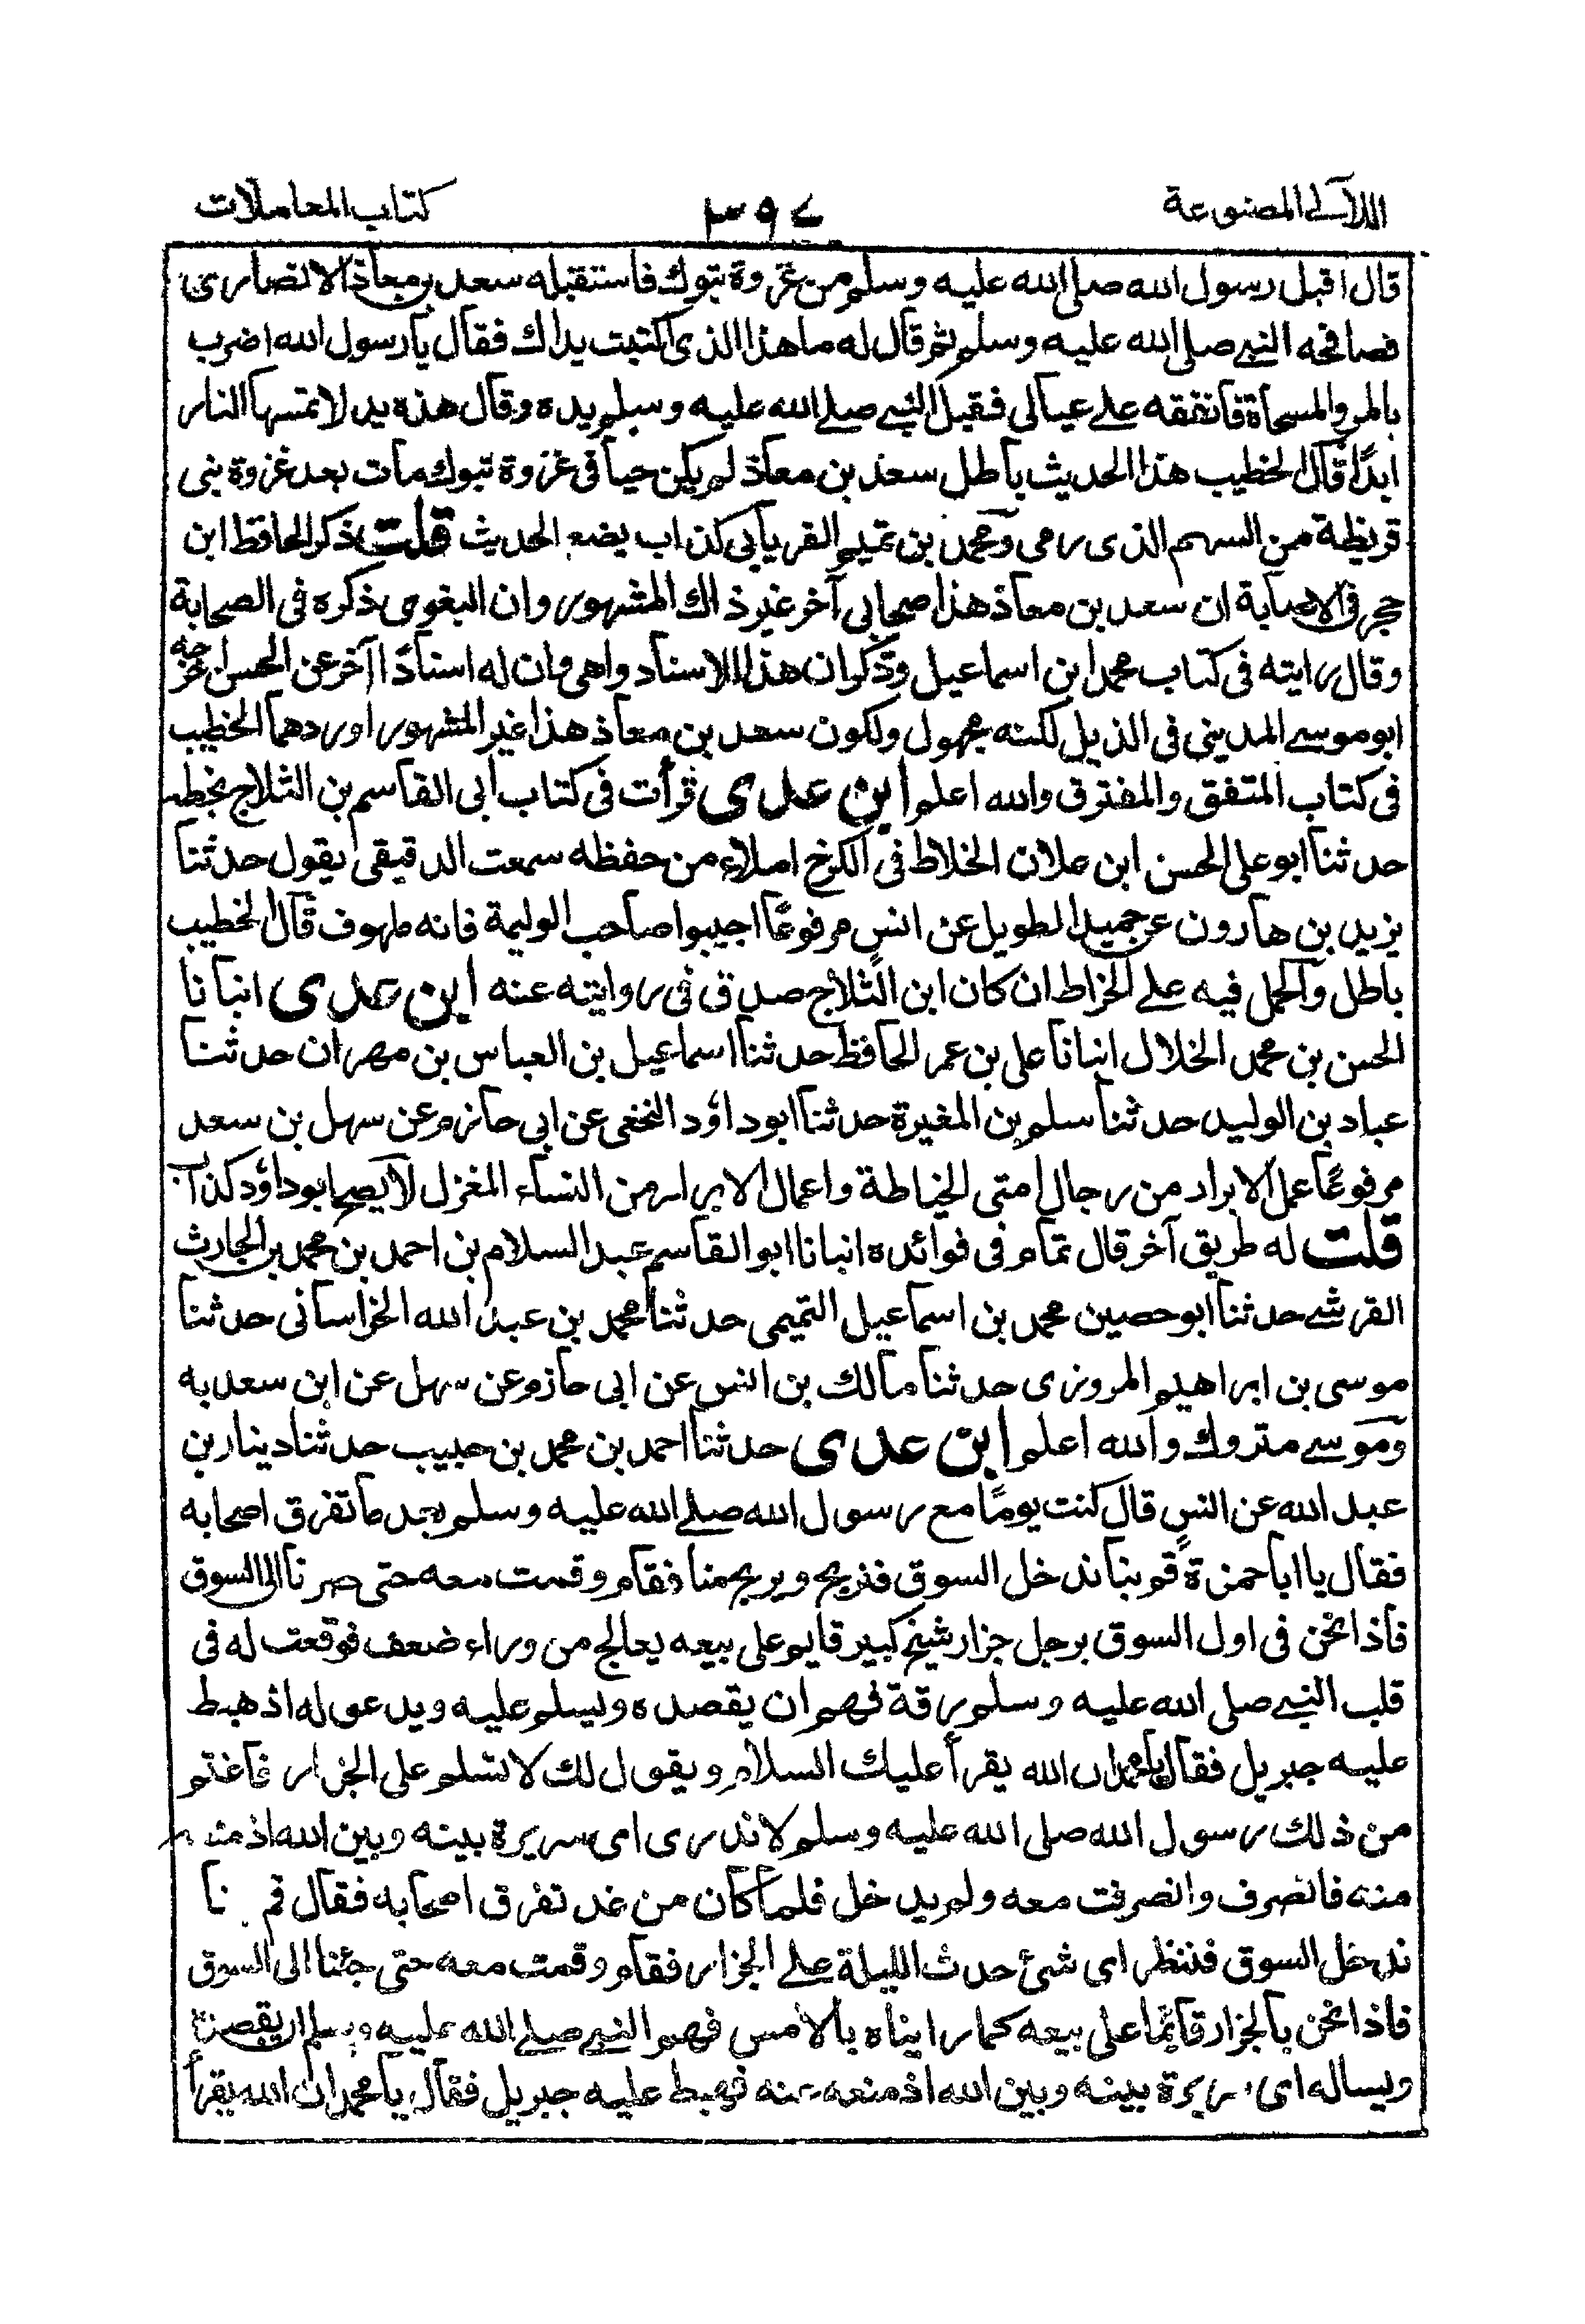 اللآلى المصنوعة
٣٩٤
كتاب المعاملات
قال اقبل رسول الله صلى الله عليه وسلم من غزوة تبوك فاستقبله سعد بن معاذ الانصارى
فصافحه النبى صلى الله عليه وسلم ثم قال له ما هذا الذى اكتبت يداك فقال يا رسول الله اضرب
بالمر والمسحاة فانفقه على عيالى فقبل النبى صلى الله عليه وسلم يده وقال هذه يد لا تمسها النار
ابدًا قال الخطيب هذا الحديث باطل سعد بن معاذ لم يكن حيا فى غزوة تبوك مات بعد غزوة بنى
قريظة من السهم الذى رمى ومحمد بن تميم الفريابى كذاب يضع الحديث قلت ذكر الحافظ ابن
حجر فى الاصابة ان سعد بن معاذ هذا صحابى آخر غير ذاك المشهور وان البغوى ذكره فى الصحابة
وقال رايته فى كتاب محمد ابن اسماعيل وذكر ان هذا الاسناد واهى وان له اسنادًا آخر عن الحسن اخرجه
ابو موسى المدينى فى الذيل لكنه مجهول ولكون سعد بن معاذ هذا غير المشهور اوردهما الخطيب
فى كتاب المتفق والمفترق والله اعلم ابن عدى قرأت فى كتاب ابى القاسم بن الثلاج بخطه
حدثنا ابو على الحسن ابن علان الخلاط فى الكرخ املاء من حفظه سمعت الدقيقى يقول حدثنا
يزيد بن هارون عن حميد الطويل عن انس مرفوعًا اجيبوا صاحب الوليمة فانه ملهوف قال الخطيب
باطل والحمل فيه على الخراط ان كان ابن الثلاج صدق فى روايته عنه ابن عدى انبانا
الحسن بن محمد الخلال انبانا على بن عمر الحافظ حدثنا اسماعيل بن العباس بن مهران حدثنا
عباد بن الوليد حدثنا سلم بن المغيرة حدثنا ابو داؤد النخعى عن ابى حازم عن سهل بن سعد
مرفوعًا عمل الابرار من رجال امتى الخياطة واعمال الابرار من النساء المغزل لا يصح ابو داؤد كذاب
قلت له طريق آخر قال تمام فى فوائده انبانا ابو القاسم عبد السلام بن احمد بن محمد بن الحارث
القرشى حدثنا ابو حصين محمد بن اسماعيل التميمى حدثنا محمد بن عبد الله الخراسانى حدثنا
موسى بن ابراهيم المروزى حدثنا مالك بن انس عن ابى حازم عن سهل عن ابن سعد به
وموسى متروك والله اعلم ابن عدى حدثنا احمد بن محمد بن حبيب حدثنا دينار بن
عبد الله عن انس قال كنت يومًا مع رسول الله صلى الله عليه وسلم بعد ما تفرق اصحابه
فقال يا ابا حمزة قم بنا ندخل السوق فنربح ويربح منا فقام وقمت معه حتى صرنا الى السوق
فاذا نحن فى اول السوق برجل جزار شيخ كبير قايم على بيعه يعالج من وراء ضعف فوقعت له فى
قلب النبى صلى الله عليه وسلم رقة فهم ان يقصده ويسلم عليه ويدعو له اذ هبط
عليه جبريل فقال يا محمد ان الله يقرأ عليك السلام ويقول لك لا تسلم على الجزار فاغتم
من ذلك رسول الله صلى الله عليه وسلم لا ندرى اى سريرة بينه وبين الله اذ منعه
منه فانصرف وانصرفت معه ولم يدخل فلما كان من غد تفرق اصحابه فقال قم بنا
ندخل السوق فننظر اى شئ حدث الليلة على الجزار فقام وقمت معه حتى جئنا الى السوق
فاذا نحن بالجزار قائمًا على بيعه كما رايناه بالأمس فهم النبى صلى الله عليه وسلم ان يقصده
ويساله اى سريرة بينه وبين الله اذ منعه منه فهبط عليه جبريل فقال يا محمد ان الله يقرأ